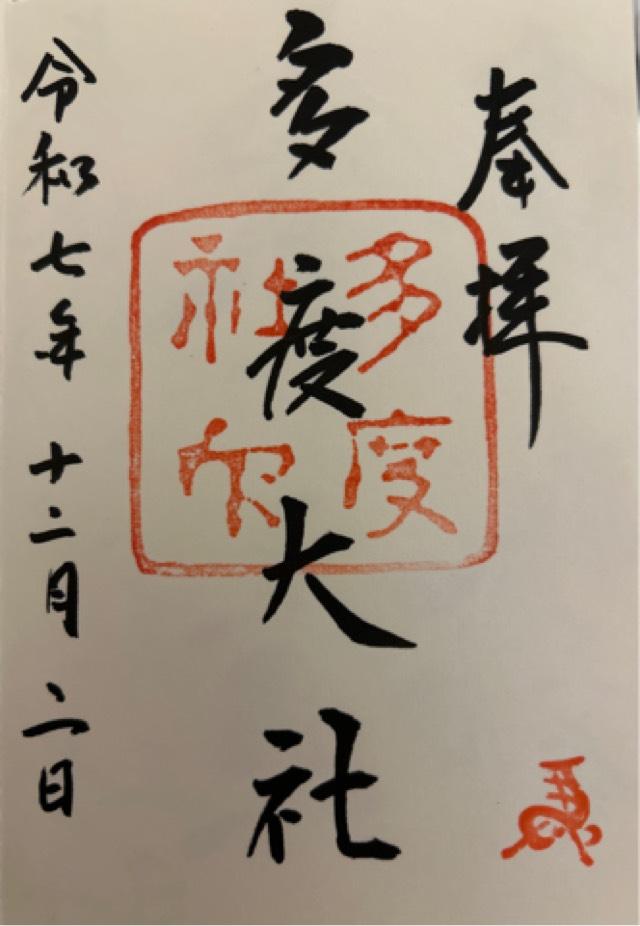 奉拝
多度大社
令和七年十二月二日
多度
社印
馬